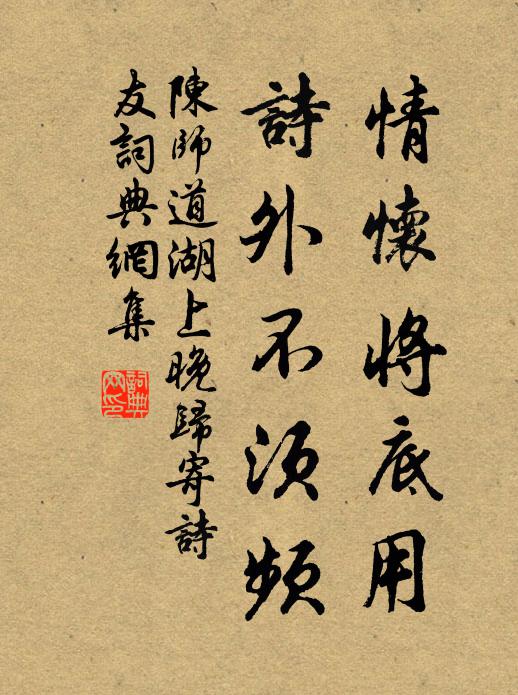 情懷將底用
詩外不須頻
陳師道湖上晚歸寄詩
友詞典網集
詞典網印